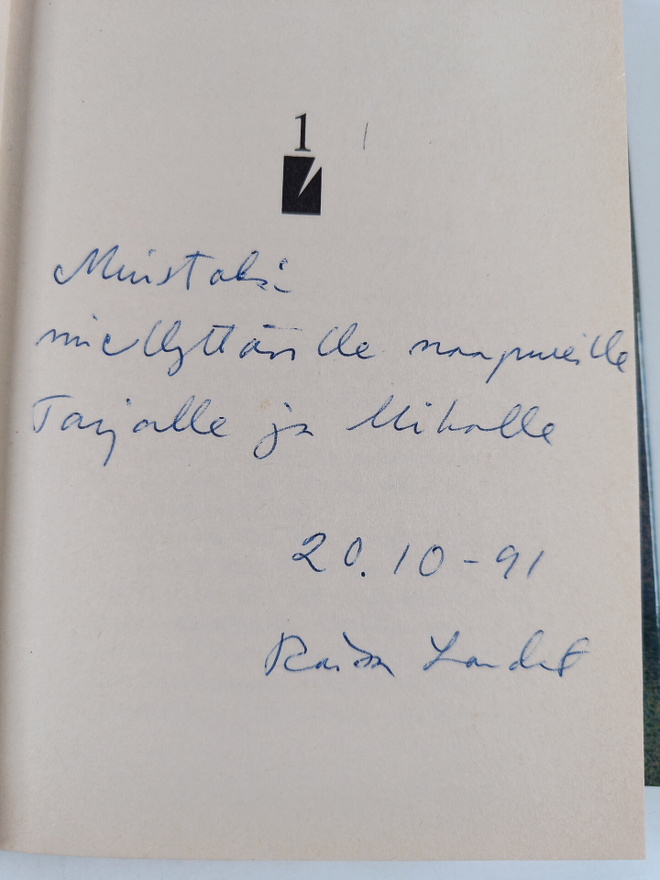 1
Muistoksi
miellyttäville naapureille
Tarjalle ja Mikalle
20.10-91
Raisa